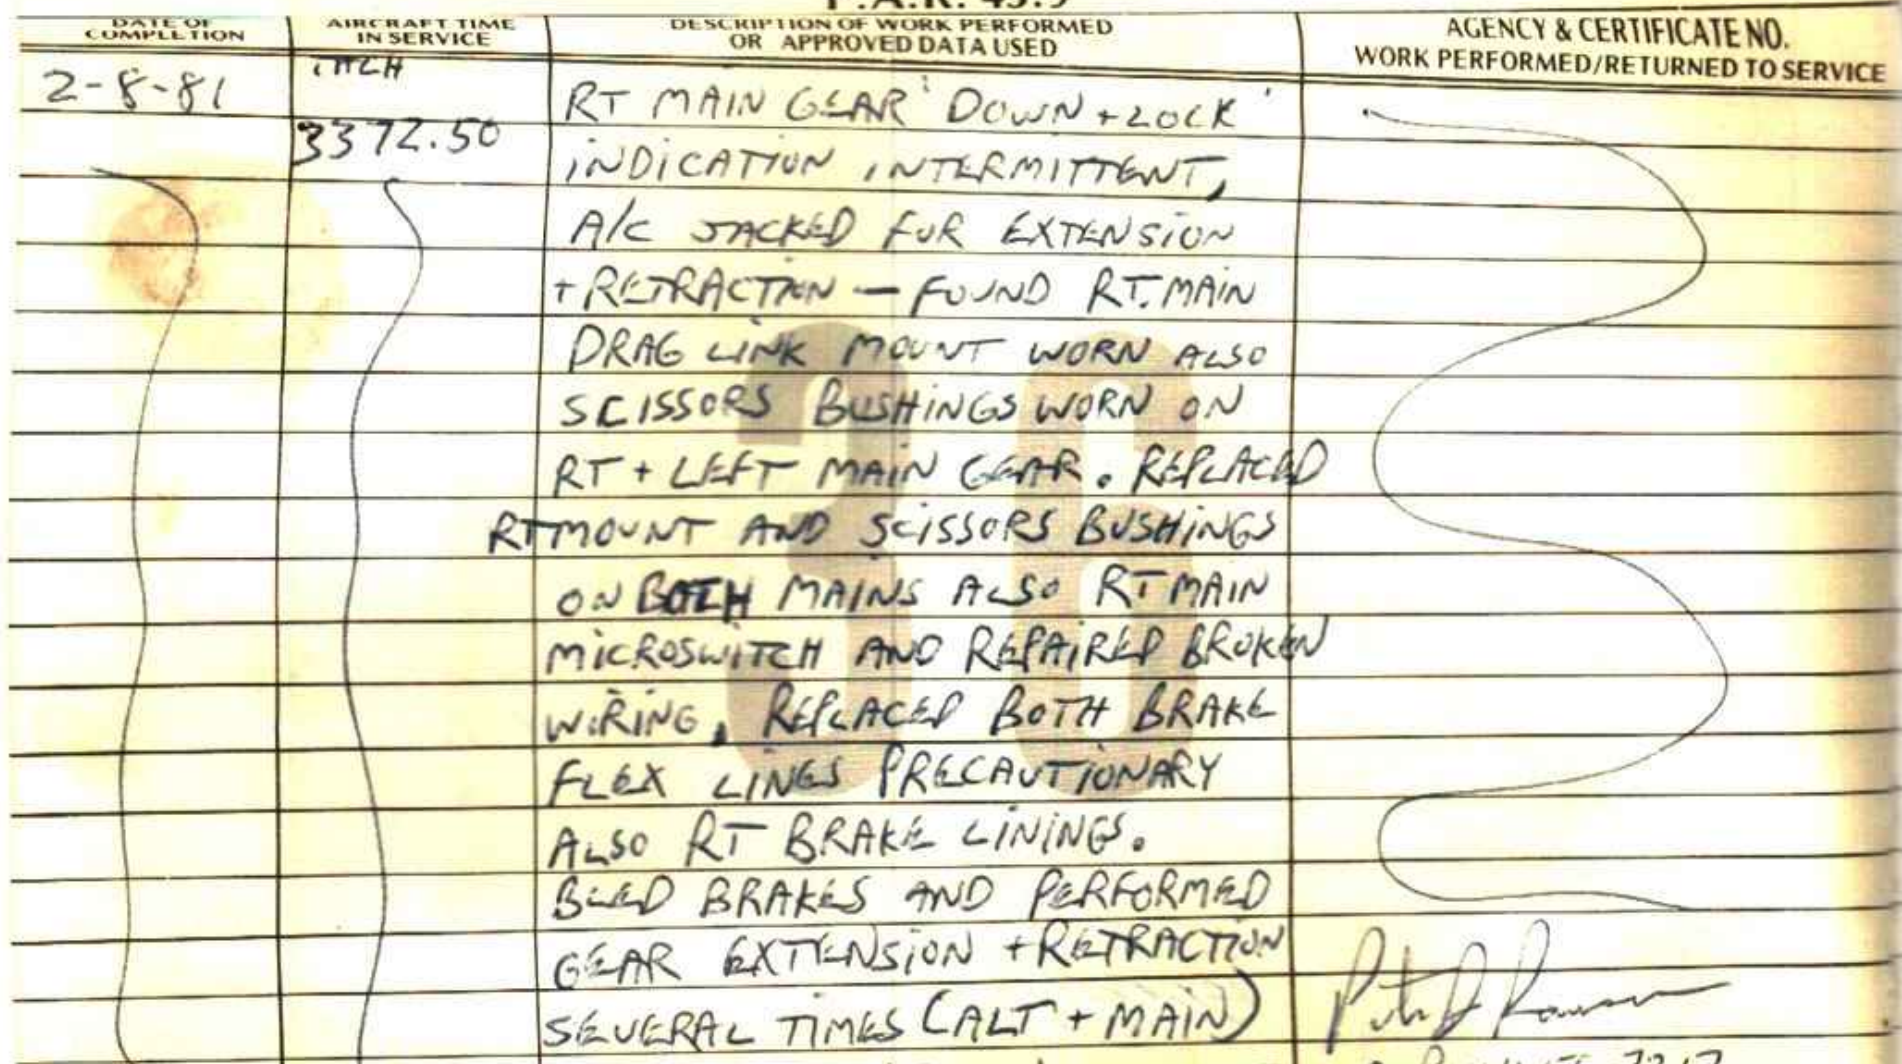 F.A.R. 43.9
DATE OF COMPLETION
AIRCRAFT TIME IN SERVICE
DESCRIPTION OF WORK PERFORMED OR APPROVED DATA USED
AGENCY & CERTIFICATE NO. WORK PERFORMED/RETURNED TO SERVICE
2-8-81
TACH
3372.50
RT MAIN GEAR "DOWN + LOCK"
INDICATION INTERMITTENT,
A/C JACKED FOR EXTENSION
+ RETRACTION — FOUND RT. MAIN
DRAG LINK MOUNT WORN ALSO
SCISSORS BUSHINGS WORN ON
RT + LEFT MAIN GEAR. REPLACED
RT MOUNT AND SCISSORS BUSHINGS
ON BOTH MAINS ALSO RT MAIN
MICROSWITCH AND REPAIRED BROKEN
WIRING, REPLACED BOTH BRAKE
FLEX LINES PRECAUTIONARY
ALSO RT BRAKE LININGS.
BLED BRAKES AND PERFORMED
GEAR EXTENSION + RETRACTION
SEVERAL TIMES (ALT + MAIN)
36